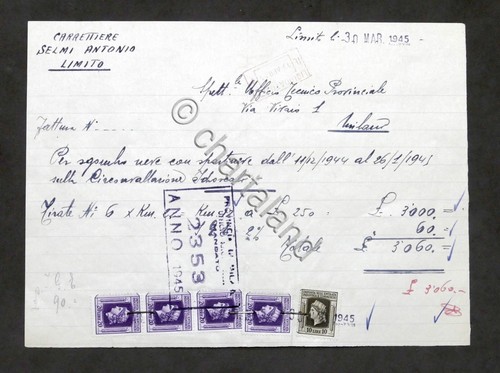 CARRETTIERE
SELMI ANTONIO
LIMITO
Limito li 30 MAR. 1945
Spett. Ufficio Tecnico Provinciale
Via Vivaio 1
Milano
Fattura N°
Per sgombro neve con spartineve dall'11/12/1944 al 26/1/1945
sulla Circonvallazione Idroscalo
Tirate N° 6 x Km. Km. a £ 250 £. 3'000.=
2% 60.=
Totale £. 3'060.=
£ 3060.-
PROVINCIA DI MILANO
MANDATO
2353
ANNO 1945
1945
10 LIRE 10
© chartaland